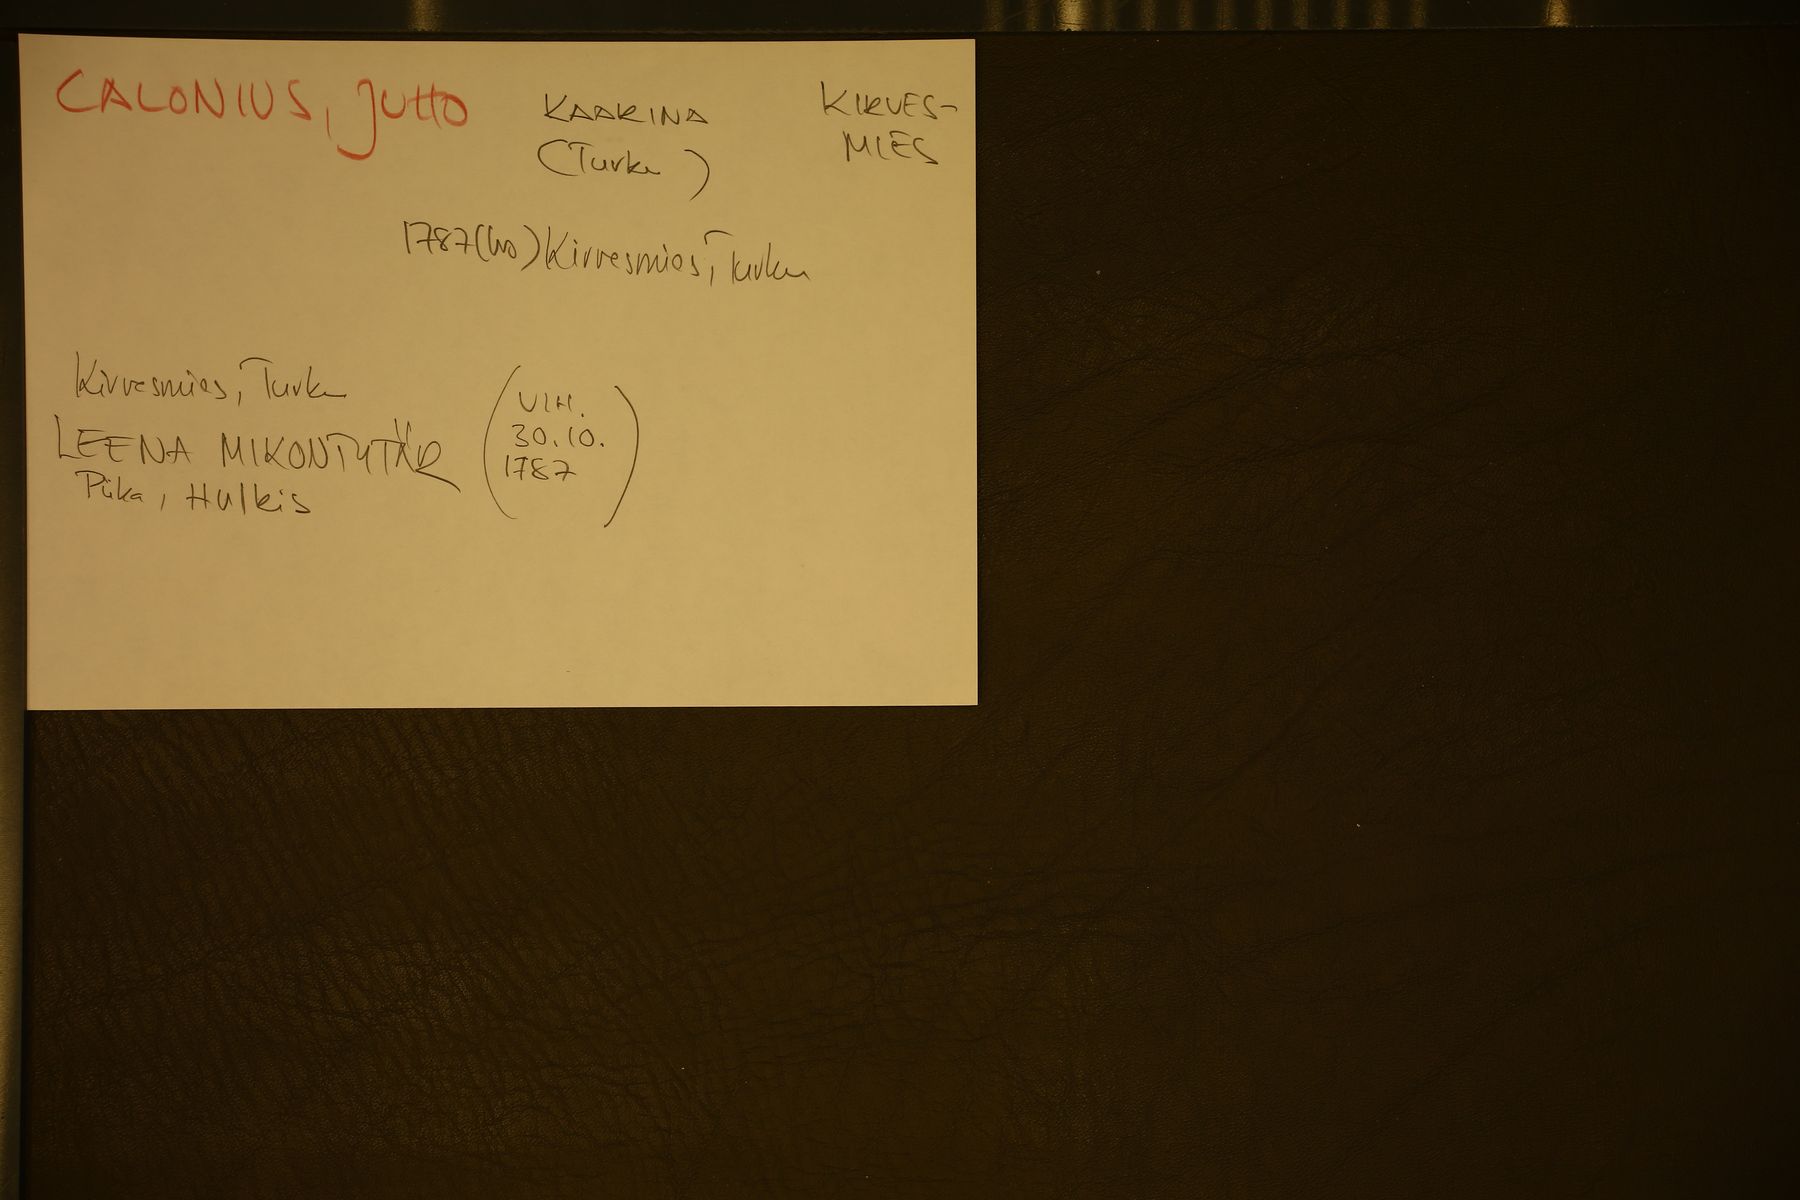 CALONIUS, JUHO
KAARINA
(Turku)
KIRVES-
MIES
1787(ho) Kirvesmies, Turku
Kirvesmies, Turku
LEENA MIKONTYTÄR
Piika, Hulkis
(VIH.
30.10.
1787)